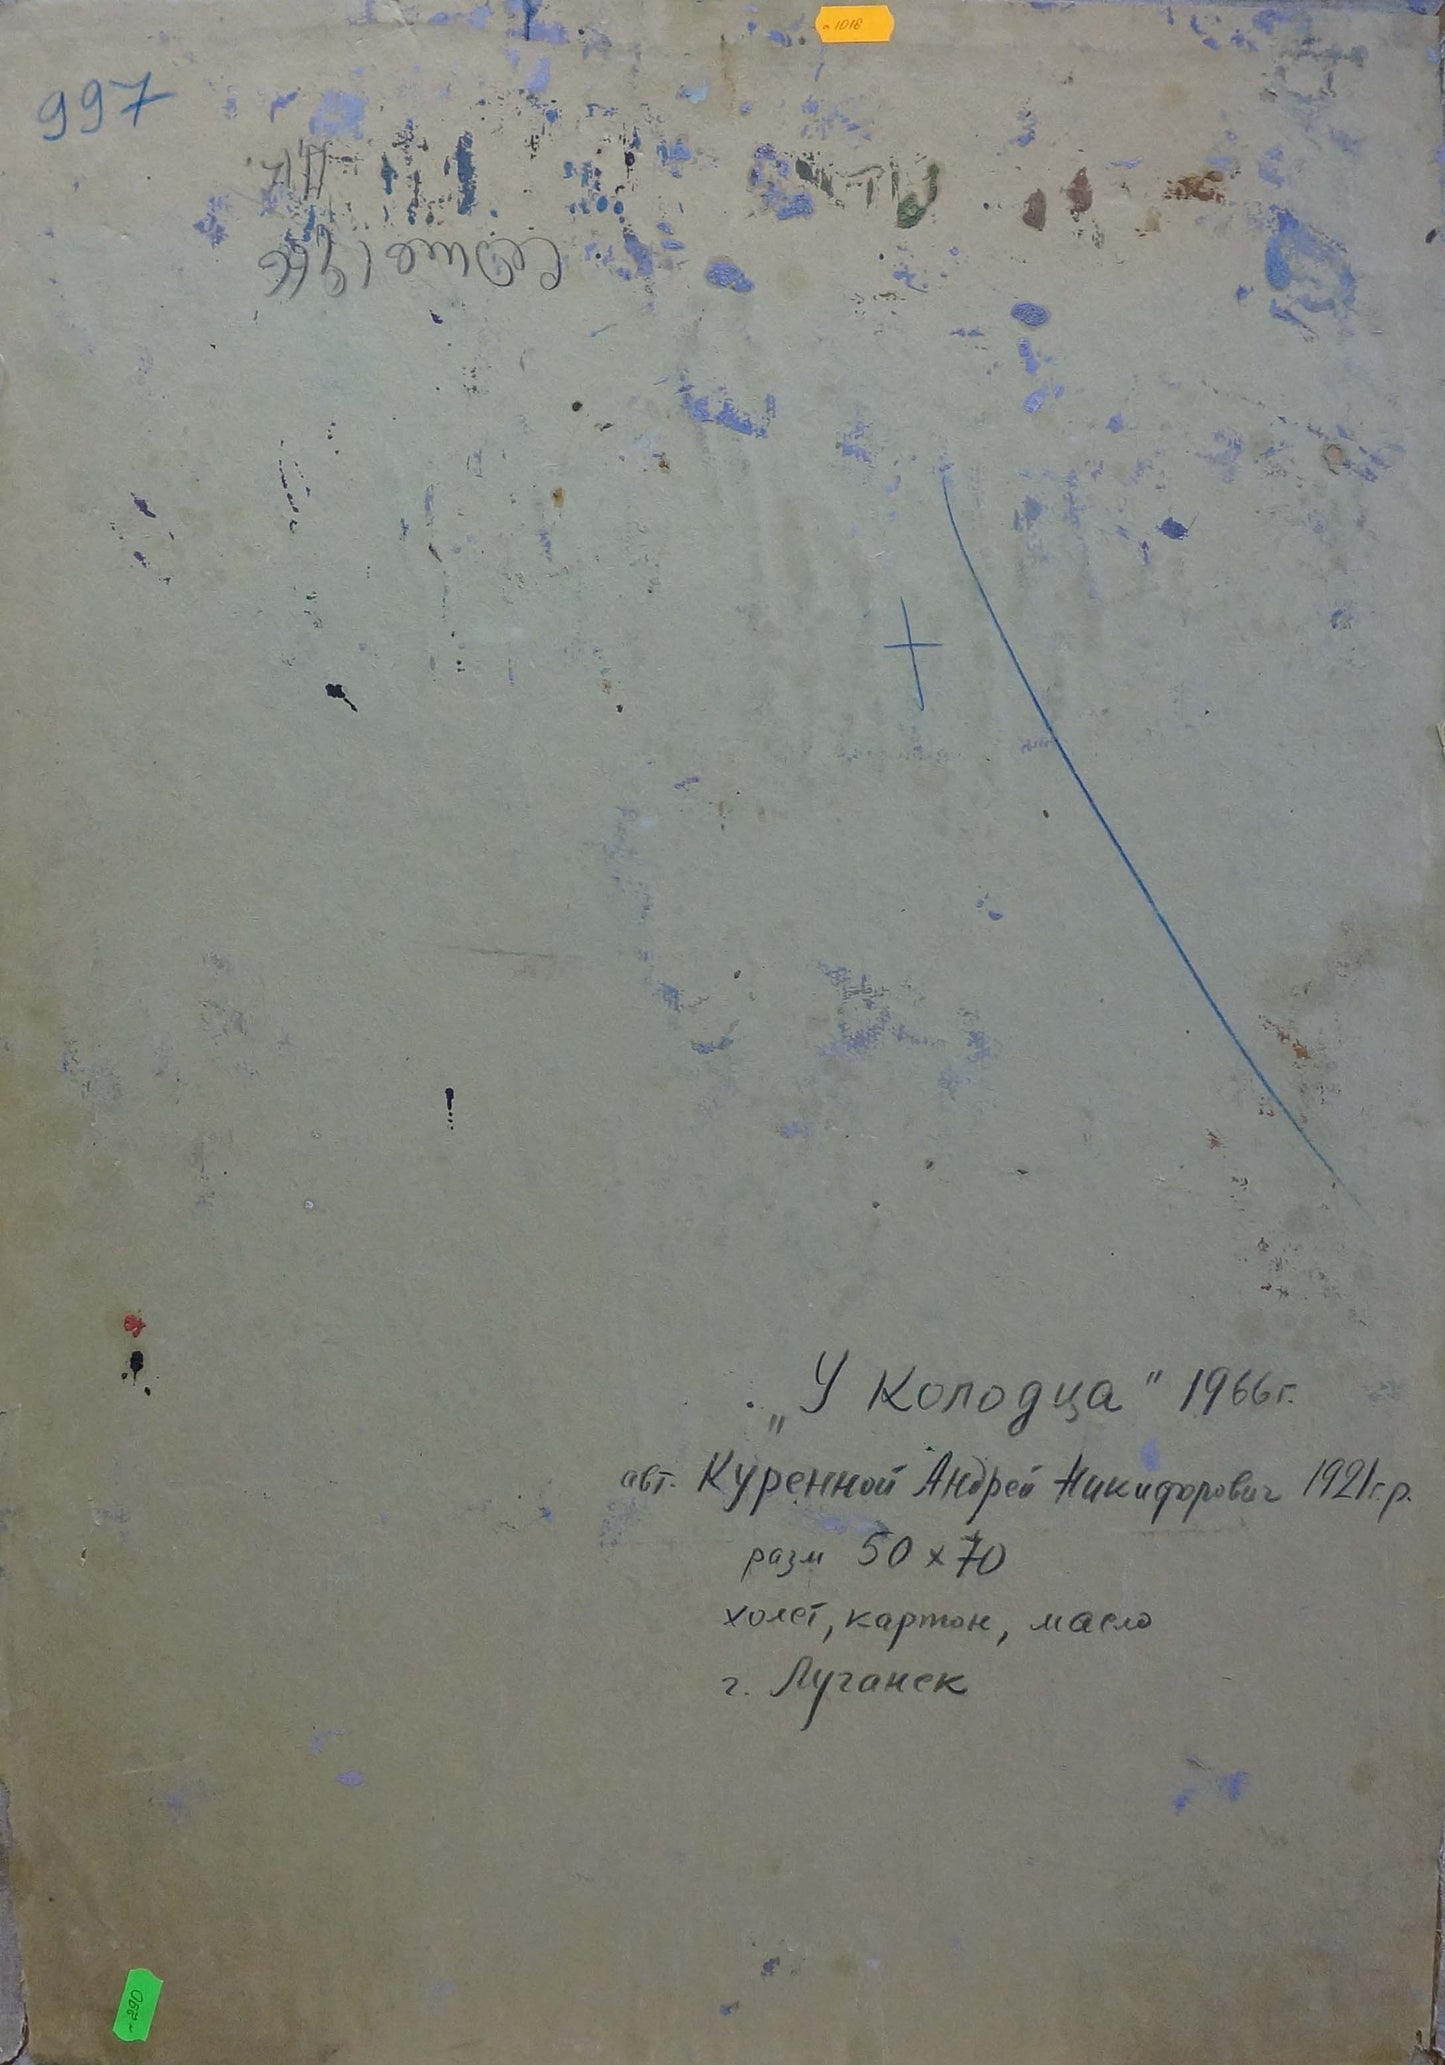 997
„У колодца" 1966г.
авт. Куренной Андрей Никифорович 1921г.р.
разм 50 х 70
холст, картон, масло
г. Луганск
1966